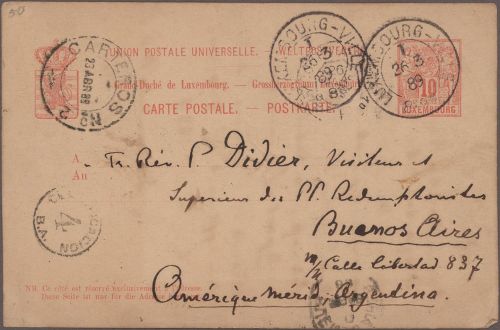 50
UNION POSTALE UNIVERSELLE. — WELTPOSTVEREIN
Grand-Duché de Luxembourg. — Grossherzogthum Luxemburg.
CARTE POSTALE. — POSTKARTE.
CARTEROS
23 ABR 89
LUXEMBOURG-VILLE
26 3
89
LUXEMBOURG-VILLE
26 3
89
10
LUXEMBOURG
A
Au
Tr. Rév. P. Didier, Visiteur et
Superieur des PP. Redemptoristes
Buenos Aires
Calle Libertad 837
Amérique mérid. Argendina.
4
B.A.
NB. Ce côté est réservé exclusivement à l'adresse.
Diese Seite ist nur für die Adresse